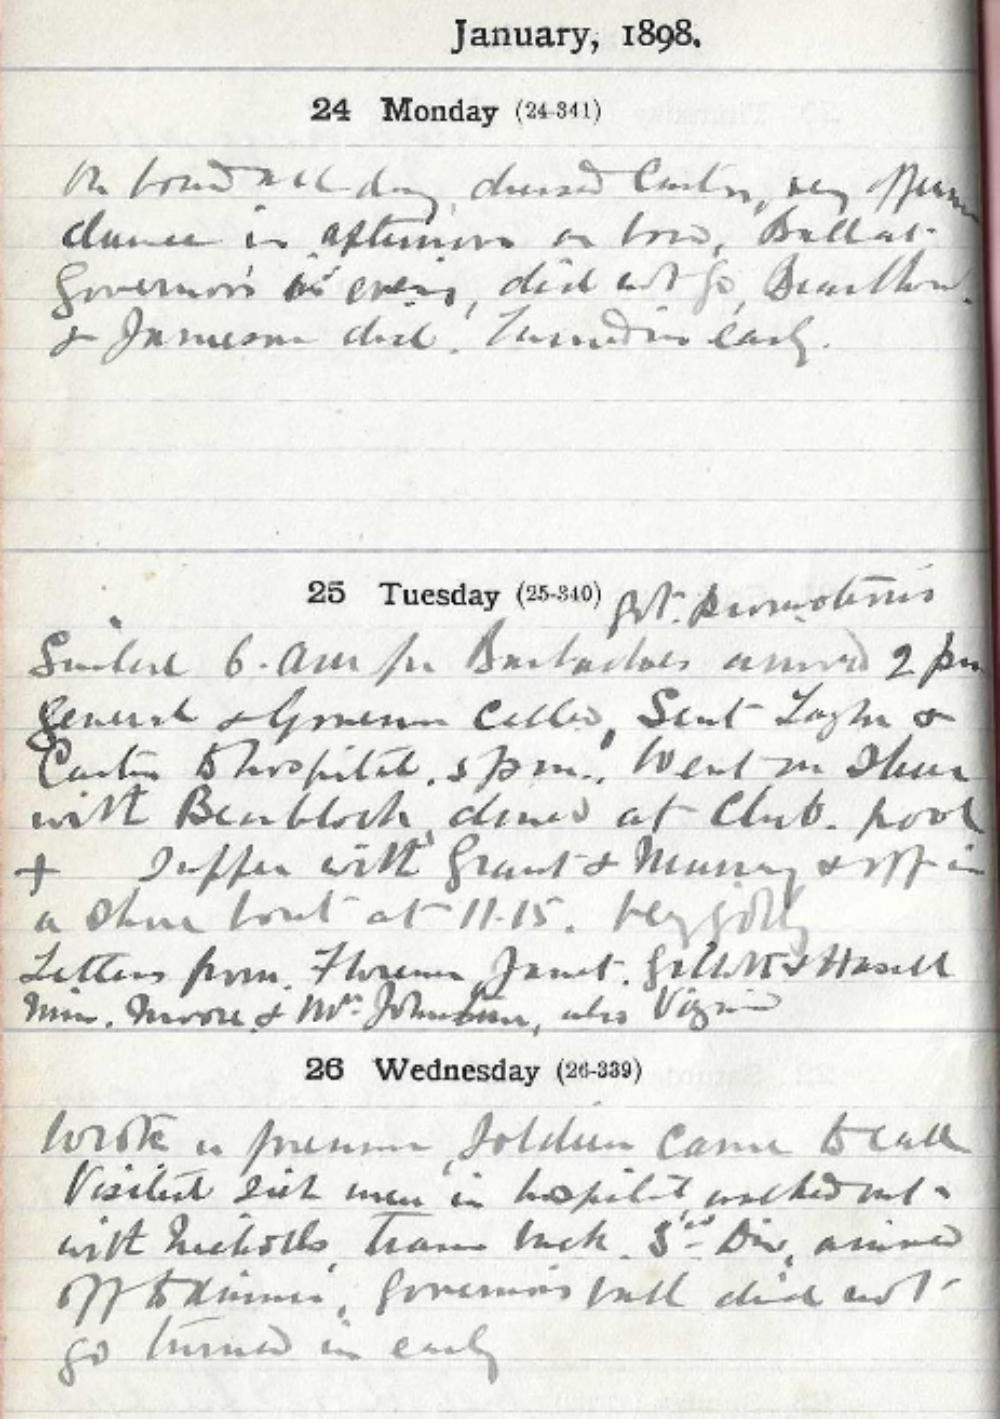 January, 1898.
24 Monday (24-341)
On board all day, dressed Carter, very
dance in afternoon on board, Ball at
Governor's in evening, did not go,
& Jameson did. Turned in early.
25 Tuesday (25-340) got promotions
Sailed 6. am for Barbadoes arrived 2 pm
General & Governor called, Sent Taylor &
Carter to hospital. 5 pm. Went on Shore
with dined at Club. pool
+ Supper with Grant & Murray & off in
a Shore boat at 11.15. very jolly
Letters from. Florence, Janet. & Hasell
Moore & Mrs Johnstone, also
26 Wednesday (26-339)
Wrote in forenoon, Soldiers came to call
Visited sick men in hospital, walked out
with Nicholls, tram back. Div. arrived
off to dinner, Governor's ball did not
go turned in early